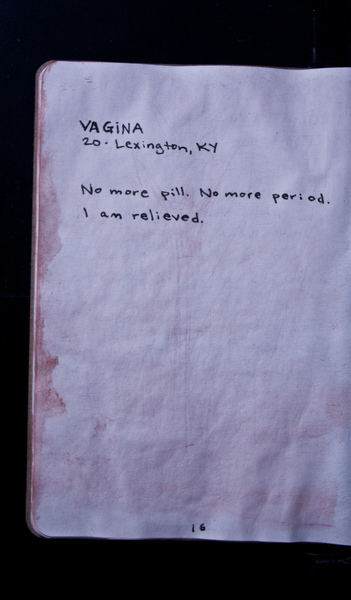 VAGINA
20. Lexington, KY
No more pill. No more period.
I am relieved.
16